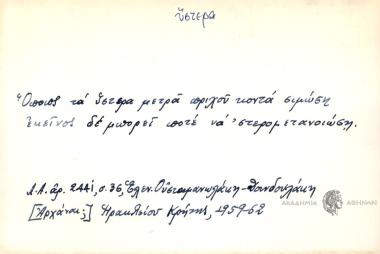 ὕστερα
Ὅποιος τά ὕστερα μετρᾶ πριχοῦ κοντά σιμώση
ἐκεῖνος δέ μπορεῖ ποτέ νά 'στερομετανοιώση.
Λ.Α. ἀρ. 2441, σ. 36, Ἑλεν. Οὐστομανωλάκη-Δανδουλάκη
[Ἀρχάναι;] Ἡρακλείου Κρήτης, 1959-62
ΑΚΑΔΗΜΙΑ ΑΘΗΝΩΝ